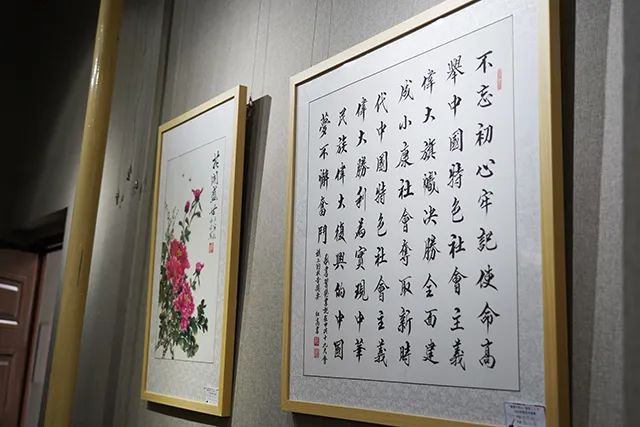 不忘初心牢記使命高
舉中國特色社會主義
偉大旗幟決勝全面建
成小康社會奪取新時
代中國特色社會主義
偉大勝利為實現中華
民族偉大復興的中國
夢不懈奮鬥
敬書習總書記在中共十九大會
花開盛世